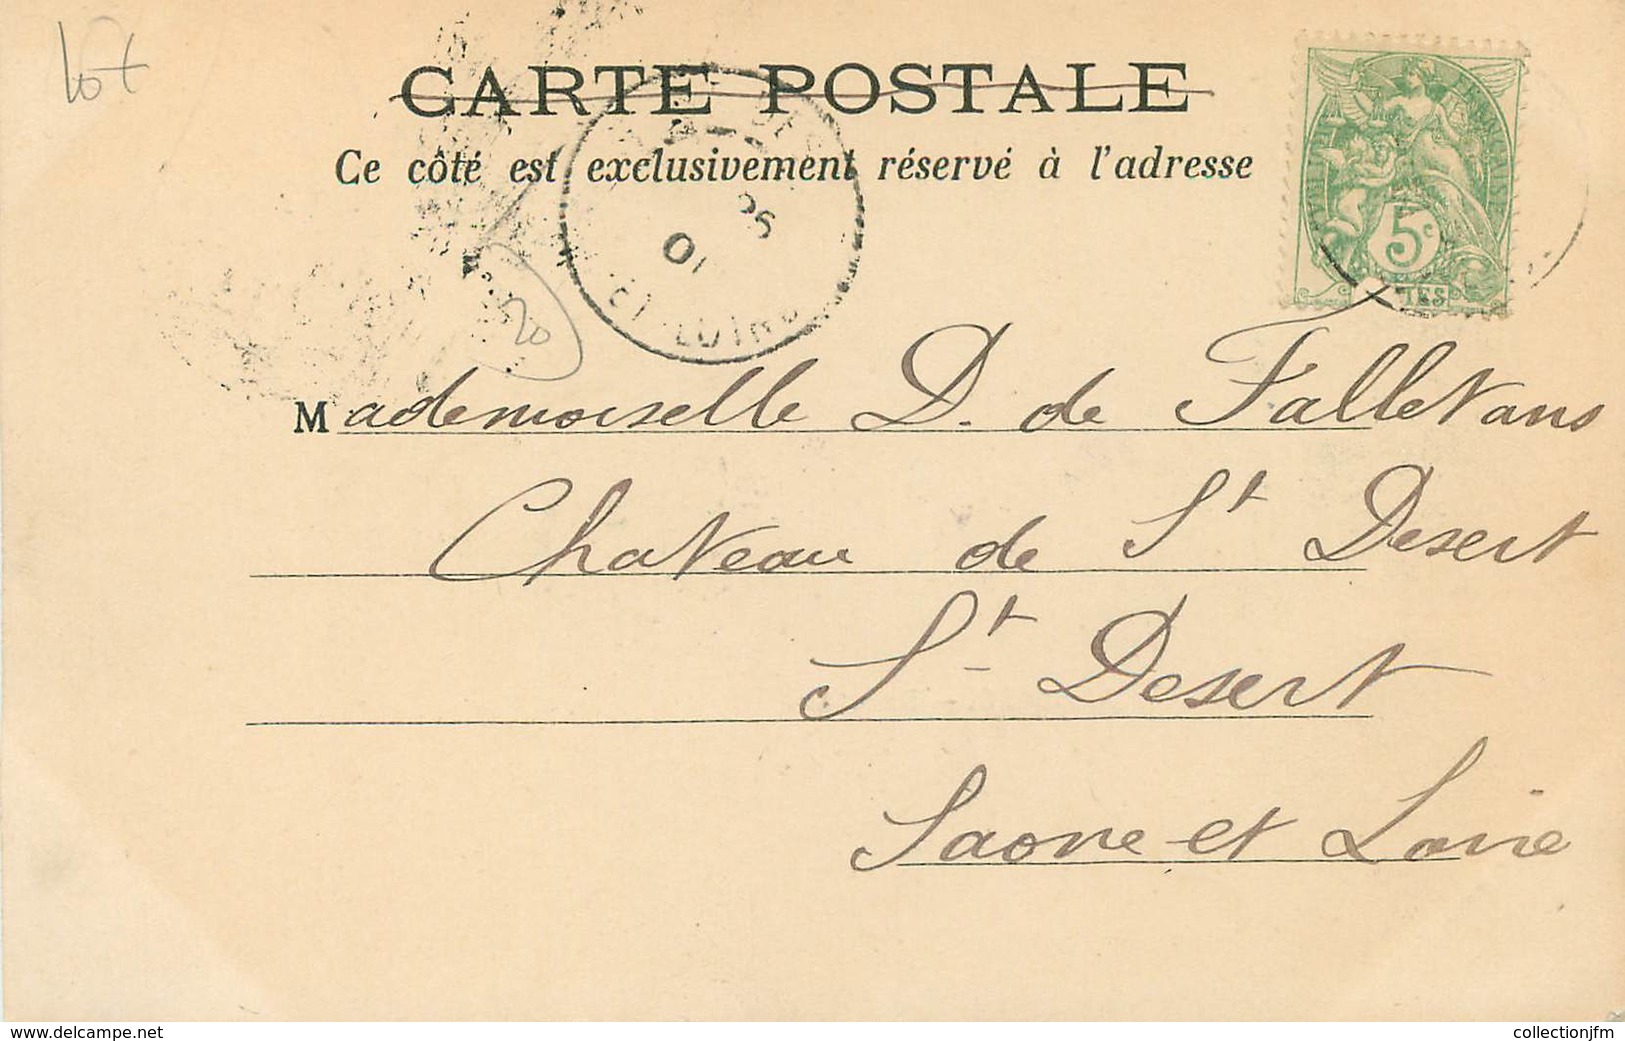 lot
CARTE POSTALE
Ce côté est exclusivement réservé à l'adresse
5c
20
Mademoiselle D. de Falletans
Chateau de St Desert
St Desert
Saone et Loire
www.delcampe.net
collectionjfm